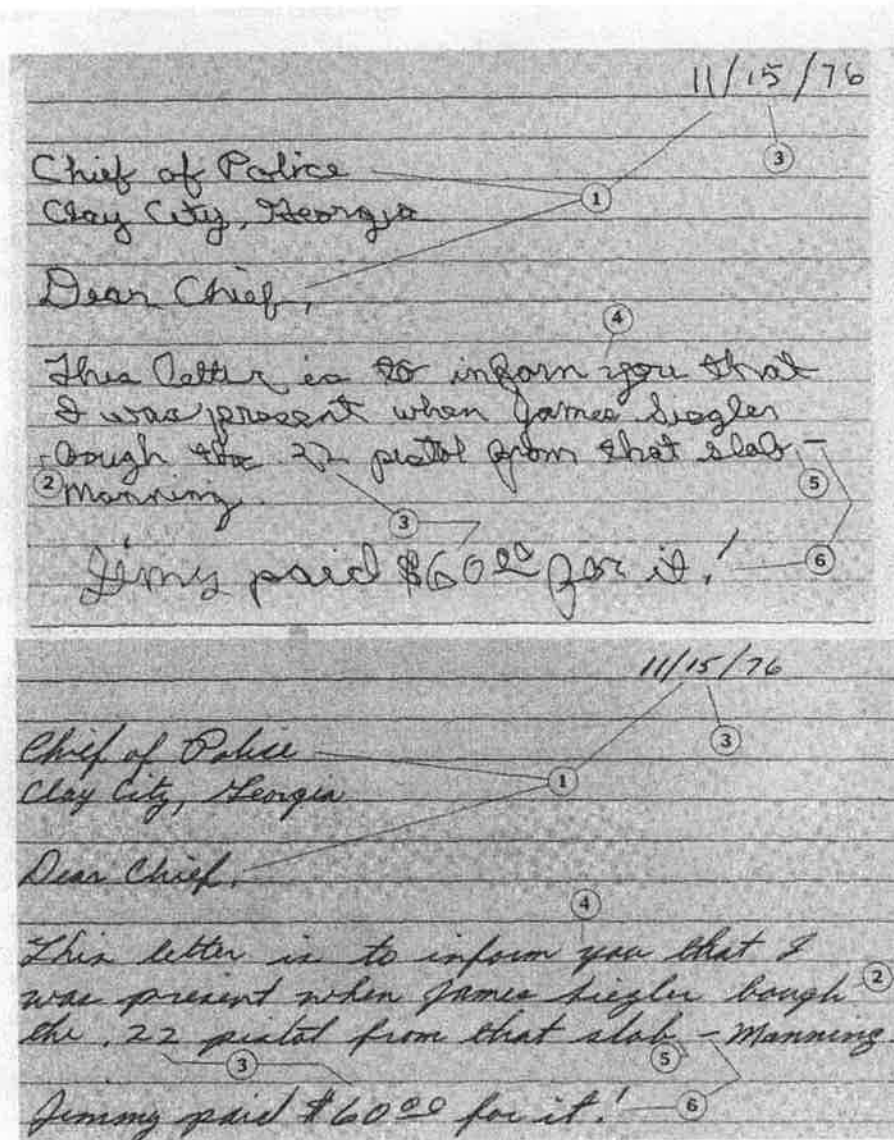 11/15/76
3
Chief of Police
1
Clay City, Georgia
Dear Chief,
4
This letter is to inform you that
I was present when James Siegler
bough the .22 pistol from that slob, –
2 5
Manning.
3
Jimy paid $60.00 for it!
6
11/15/76
3
Chief of Police
1
Clay City, Georgia
Dear Chief,
4
This letter is to inform you that I
was present when James Siegler bough 2
the .22 pistol from that slob, – Manning.
3 5
Jimmy paid $60.00 for it!
6